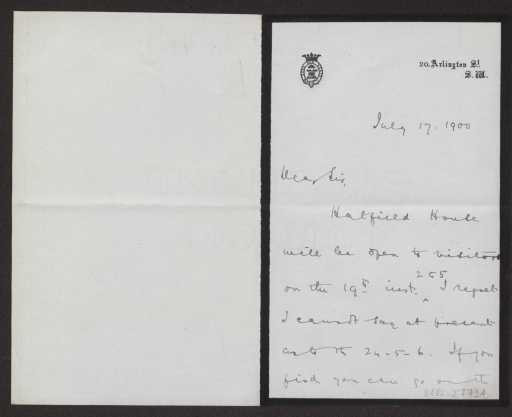 20, Arlington St
S.W.
July 17. 1900
Dear Sir,
Hatfield House
will be open to visitors
255
on the 19th inst. ^ I regret
I cannot say at present
as to th 24-5-6. If you
find you can go on th